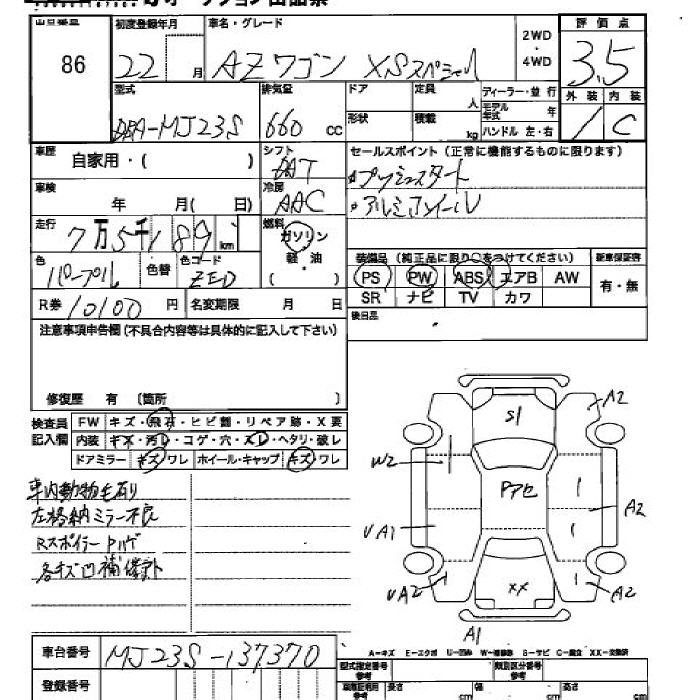 出品番号 初度登録年月 車名・グレード 2WD・4WD 評価点
86 22 月 AZワゴン XSスペシャル 3.5
型式 排気量 ドア 定員 人 ディーラー・並行 外装 内装
DBA-MJ23S 660 cc 形状 積載 kg モデル年式 年 ハンドル 左・右 C
車歴 自家用・( ) シフト セールスポイント(正常に機能するものに限ります)
DAT プッシュスタート
車検 年 月( 日) 冷房 AAC アルミホイール
走行 7万5千189km 燃料 ガソリン
軽・油 ( )
色 パープル 色替 色コード ZED
装備品(純正品に限り○をつけてください) 新車保証書
PS PW ABS エアB AW 有・無
SR ナビ TV カワ
R券 10100 円 名変期限 月 日 後日品
注意事項申告欄(不具合内容等は具体的に記入して下さい)
修復歴 有 〔箇所 〕
検査員記入欄 FW キズ・飛石・ヒビ割・リペア跡・X要
内装 キズ・汚レ・コゲ・穴・スレ・ヘタリ・破レ
ドアミラー キズ・ワレ ホイール・キャップ キズ・ワレ
車内動物毛有り
左格納ミラー不良
Rスポイラー Pハゲ
各キズ凹補修跡
S1
A2
W2
Pアセ
A2
UA1
UA2
XX
A2
A1
A-キズ E-エクボ U-凹み W-補修跡 S-サビ C-腐食 XX-交換済
車台番号 MJ23S-137370
型式指定番号 参考 類別区分番号 参考
登録番号
長さ cm 幅 cm 高さ cm